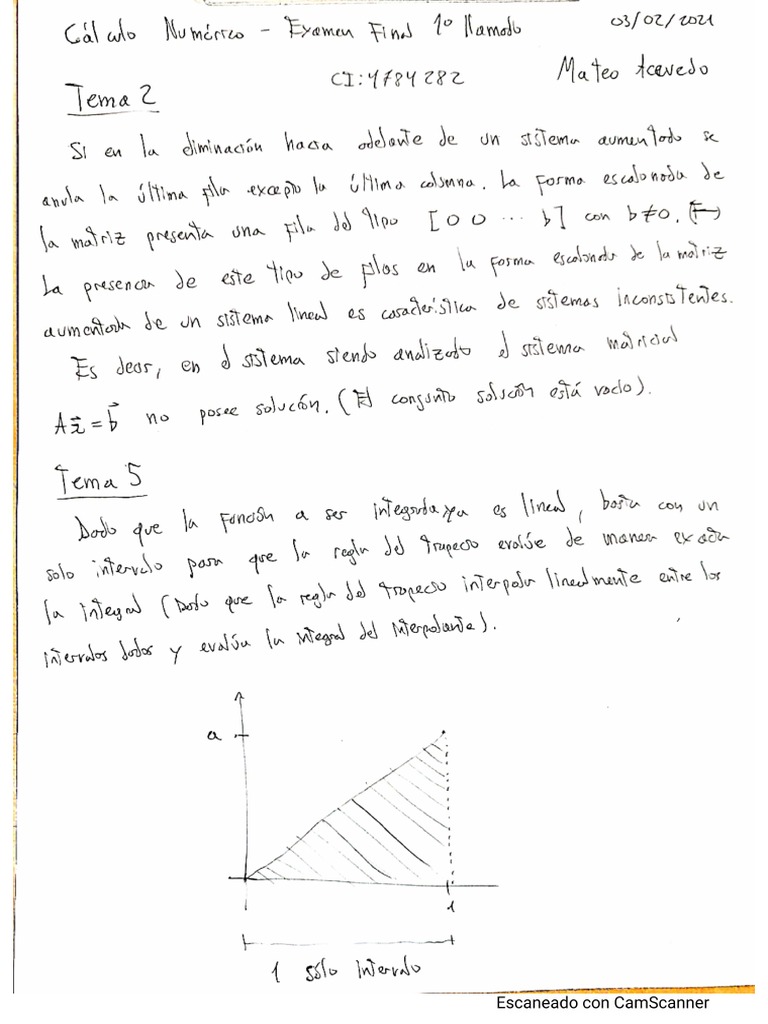 Cálculo Numérico - Examen Final 1º llamado 03/02/2021
CI:4784282 Mateo Acevedo
Tema 2
Si en la eliminación hacia adelante de un sistema aumentado se
anula la última fila excepto la última columna. La forma escalonada de
la matriz presenta una fila del tipo [0 0 ... b] con b≠0.
La presencia de este tipo de filas en la forma escalonada de la matriz
aumentada de un sistema lineal es característica de sistemas inconsistentes.
Es decir, en el sistema siendo analizado el sistema matricial
Ax⃗=b⃗ no posee solución. (El conjunto solución está vacío).
Tema 5
Dado que la función a ser integrada ya es lineal, basta con un
solo intervalo para que la regla del trapecio evalúe de manera exacta
la integral (Dado que la regla del trapecio interpola linealmente entre los
intervalos dados y evalúa la integral del interpolante).
a
1
1 sólo intervalo
Escaneado con CamScanner